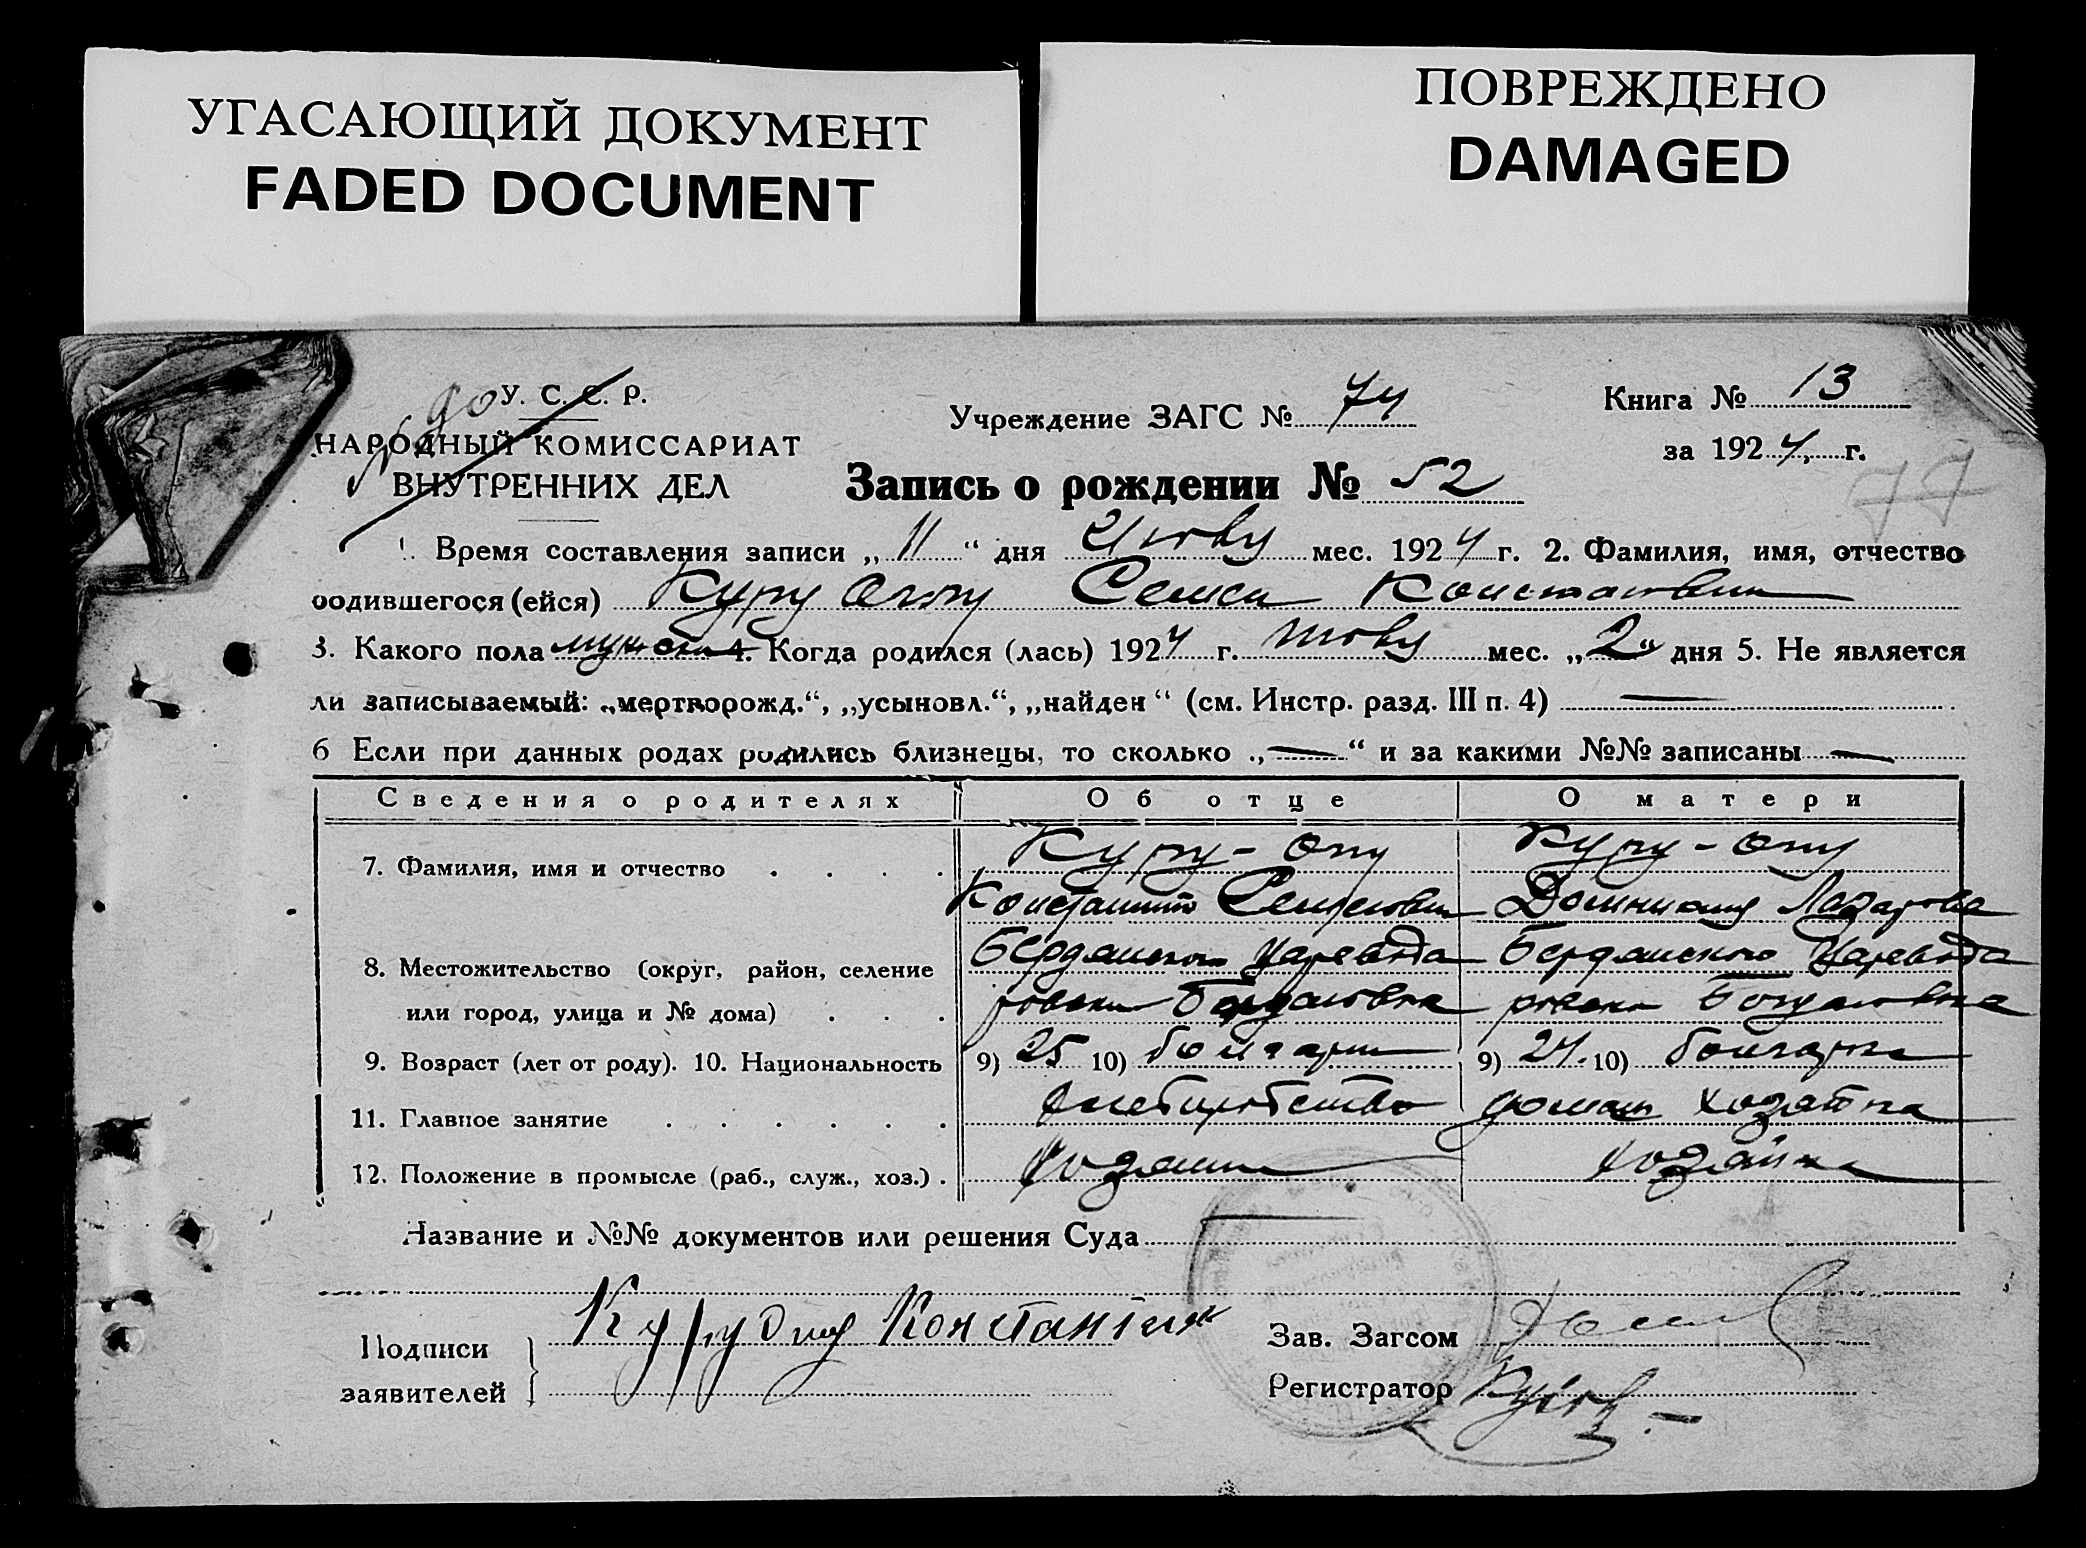 УГАСАЮЩИЙ ДОКУМЕНТ
FADED DOCUMENT
ПОВРЕЖДЕНО
DAMAGED
У. С. С. Р.
НАРОДНЫЙ КОМИССАРИАТ
ВНУТРЕННИХ ДЕЛ
Учреждение ЗАГС № 74
Книга № 13
за 1924 г.
77
Запись о рождении № 52
1. Время составления записи „11“ дня мес. 1924 г. 2. Фамилия, имя, отчество
родившегося (ейся) Куру Оглу Семен Константин
3. Какого пола мужск 4. Когда родился (лась) 1924 г. мес. „2“ дня 5. Не является
ли записываемый: „мертворожд.“, „усыновл.“, „найден“ (см. Инстр. разд. III п. 4) —
6 Если при данных родах родились близнецы, то сколько „—“ и за какими №№ записаны —
Сведения о родителях Об отце О матери
7. Фамилия, имя и отчество Куру-Оглу Куру-Оглу
Константин Семенович Домникия Лазарова
8. Местожительство (округ, район, селение Бердянского Царевода Бердянского Царевода
или город, улица и № дома) ровски Богдановка ровски Богдановка
9. Возраст (лет от роду). 10. Национальность 9) 25 10) болгарин 9) 24. 10) болгарка
11. Главное занятие хлеборобство домаш хозяйка
12. Положение в промысле (раб., служ., хоз.) хозяин хозяйка
Название и №№ документов или решения Суда
Подписи
заявителей
Константин
Зав. Загсом
Регистратор